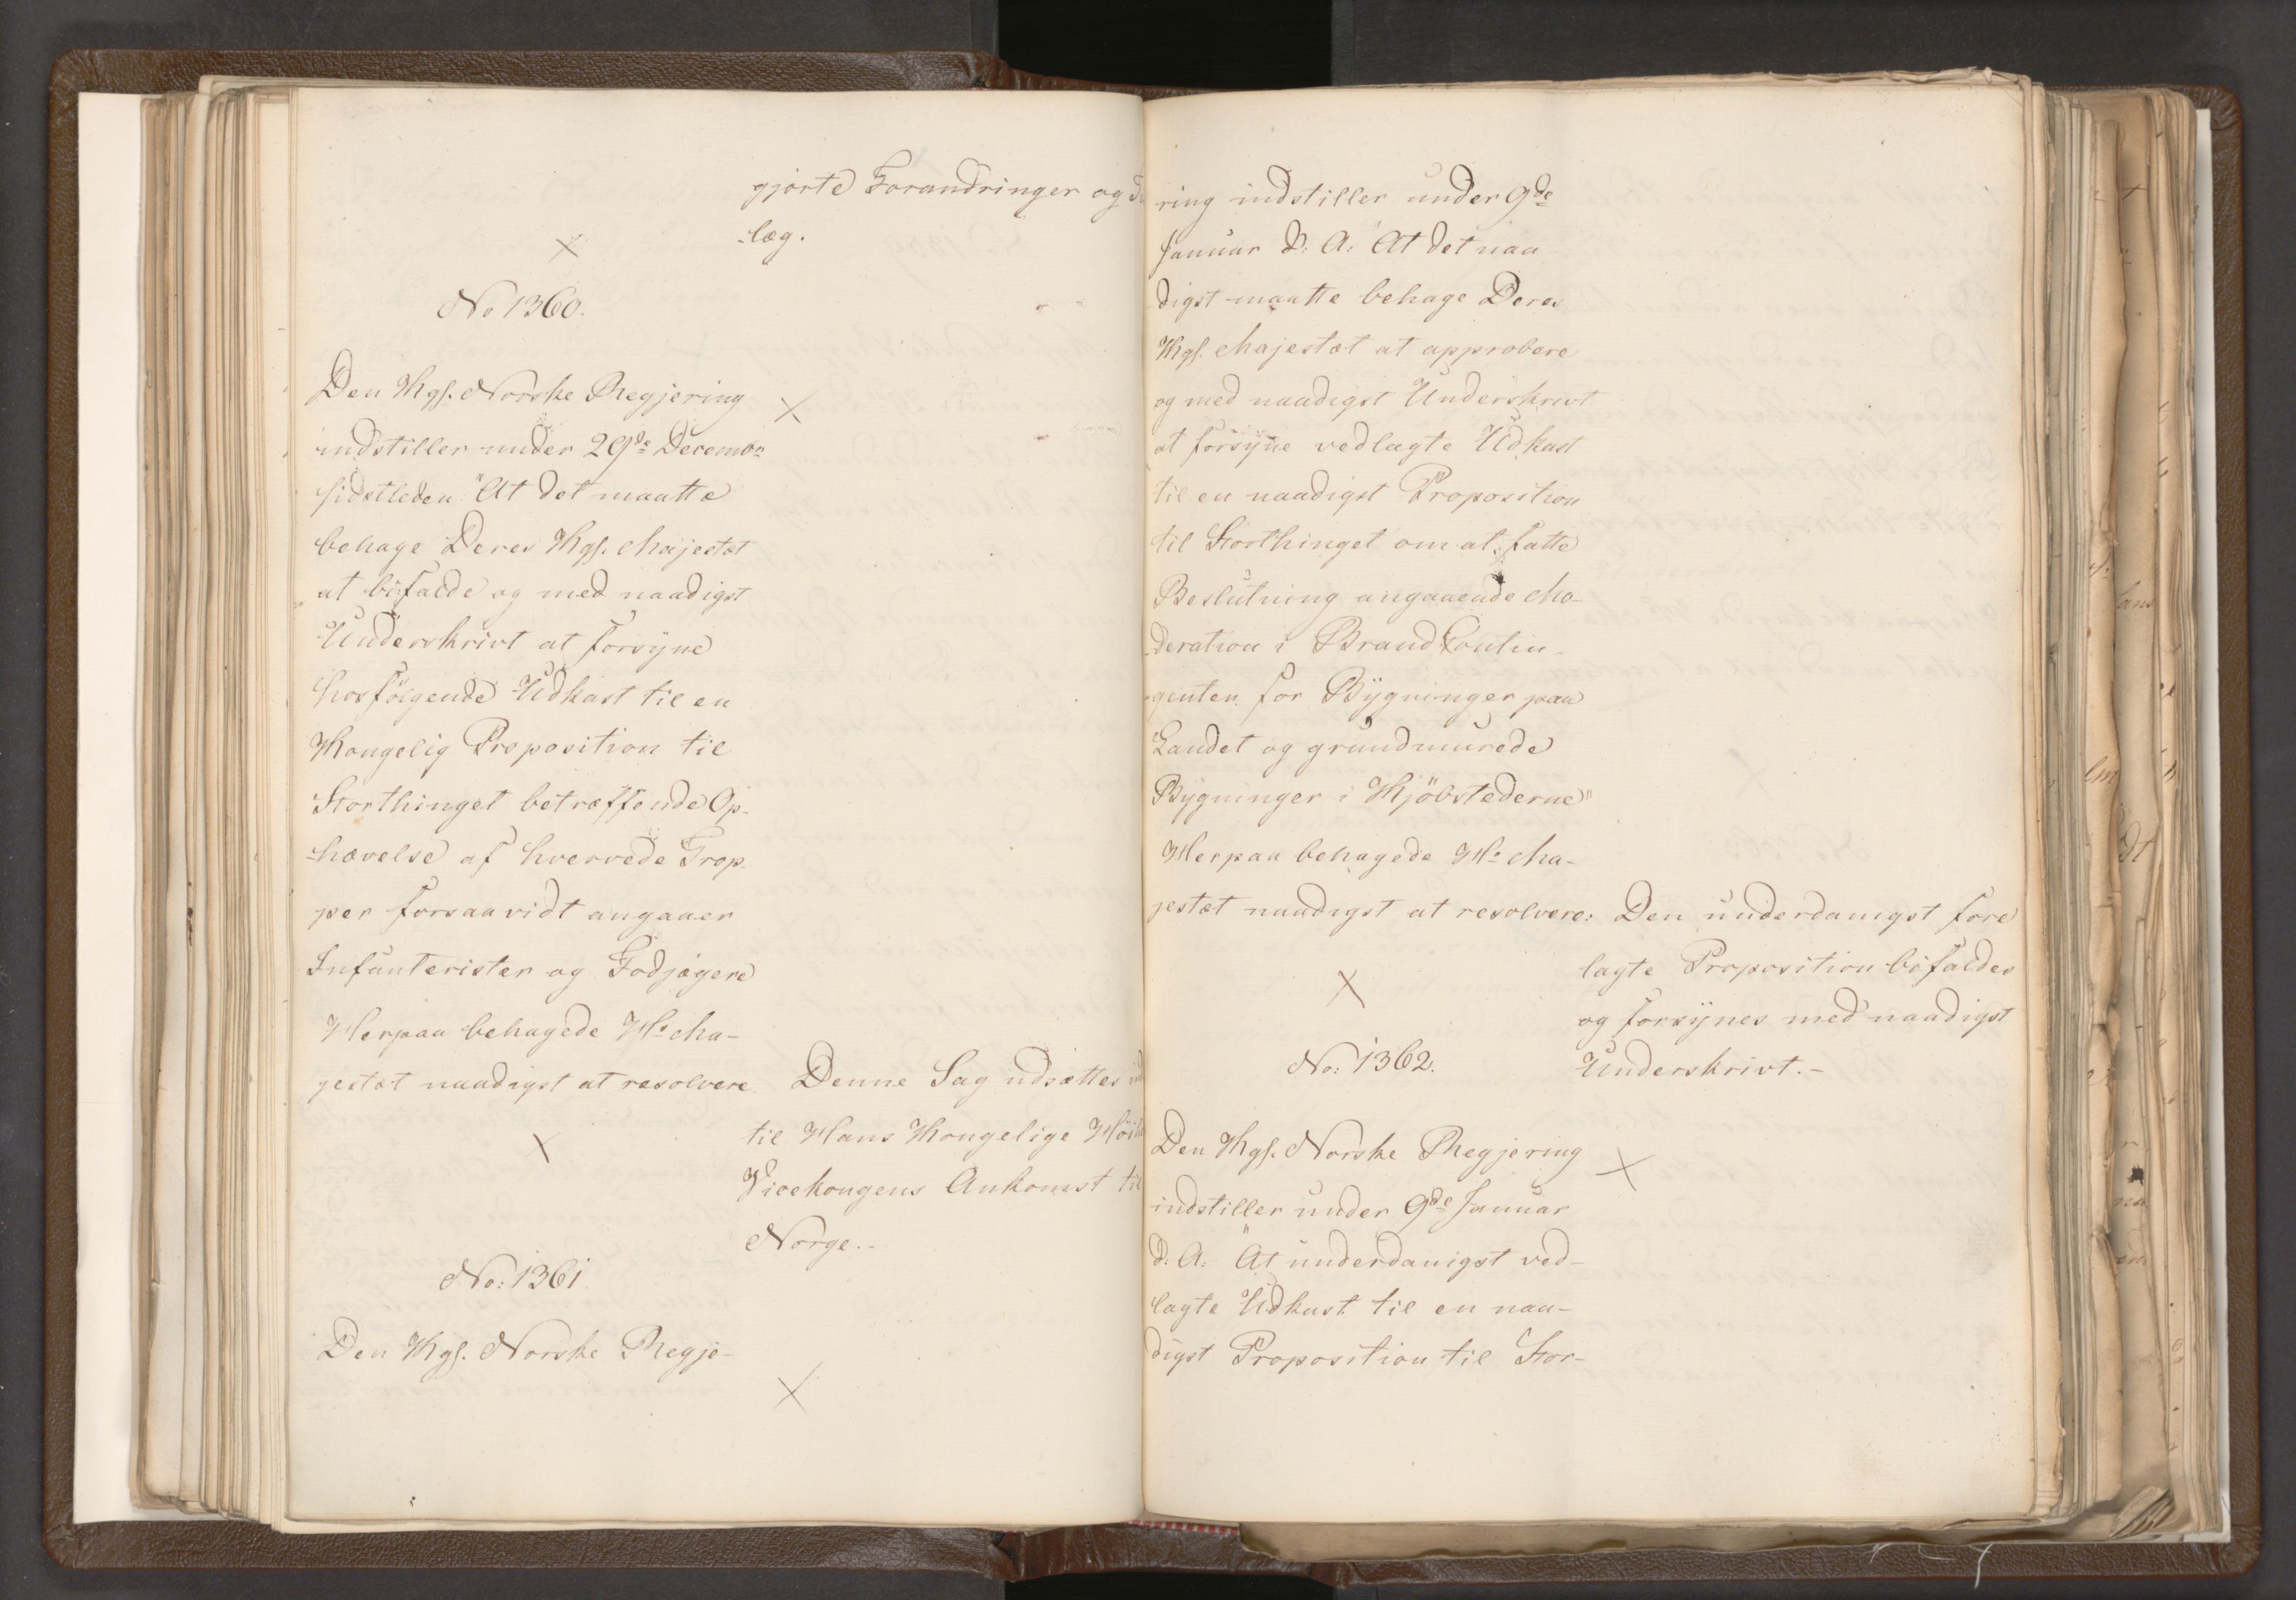 gjorte Forandringer og
-læg.
No 1360.
Den Kgs. Norske Regjering
indstiller under 29de Decembr
sidstleden "At det maatte
behage Deres Kgs. Majestæt
at bifalde og med naadigst
Underskrivt at forsyne
hosfölgende Udkast til en
Kongelig Proposition til
Storthinget betræffende Op-
-hævelse af hvervede Trop-
per forsaavidt angaaer
Infanterister og Fodjægere
Herpaa behagede Hs Ma-
jestæt naadigst at resolvere
Denne Sag udsættes ind
til Hans Kongelige Höi
Vicekongens Ankomst til
Norge.-
No: 1361.
Den Kgs. Norske Regje-
ring indstiller under 9de
Januar d: A: "At det naa
digst maatte behage Deres
Kgs. Majestæt at approbere
og med naadigst Underskrivt
at forsyne vedlagte Udkast
til en naadigst Proposition
til Storthinget om at fatte
Beslutning angaaende Mo-
-deration i Brand Contin-
-genten for Bygninger paa
Landet og grundmurede
Bygninger i Kjöbstederne"
Herpaa behagede Hs Ma-
jestæt naadigst at resolvere:
Den underdanigst fore
lagte Proposition bifaldes
og forsynes med naadigst
Underskrivt.-
No: 1362.
Den Kgs. Norske Regjering
indstiller under 9de Januar
d: A: "At underdanigst ved-
lagte Udkast til en naa-
digst Proposition til Stor-